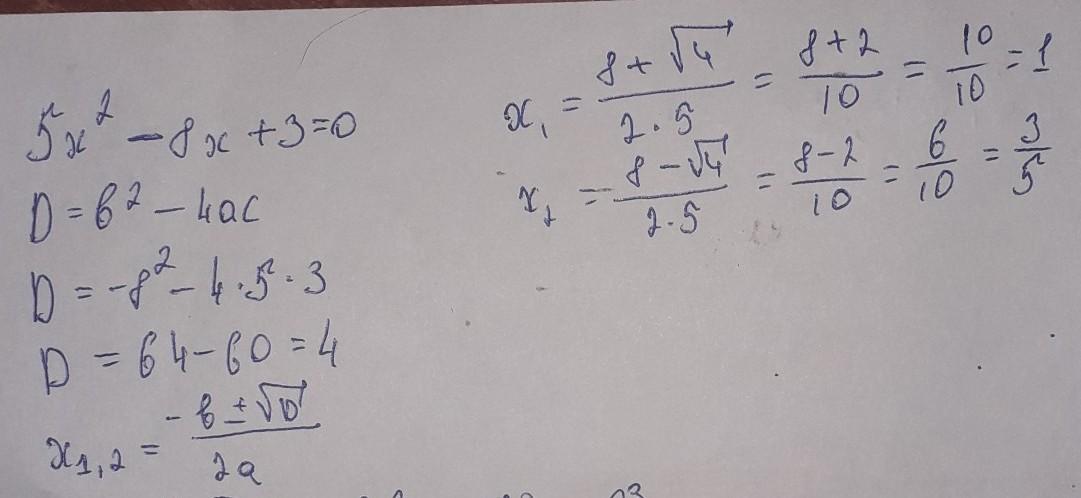 5x² - 8x + 3 = 0
D = b² - 4ac
D = -8² - 4·5·3
D = 64 - 60 = 4
x₁,₂ = (-b ± √D) / 2a
x₁ = (8 + √4) / (2·5) = (8 + 2) / 10 = 10/10 = 1
x₂ = (8 - √4) / (2·5) = (8 - 2) / 10 = 6/10 = 3/5